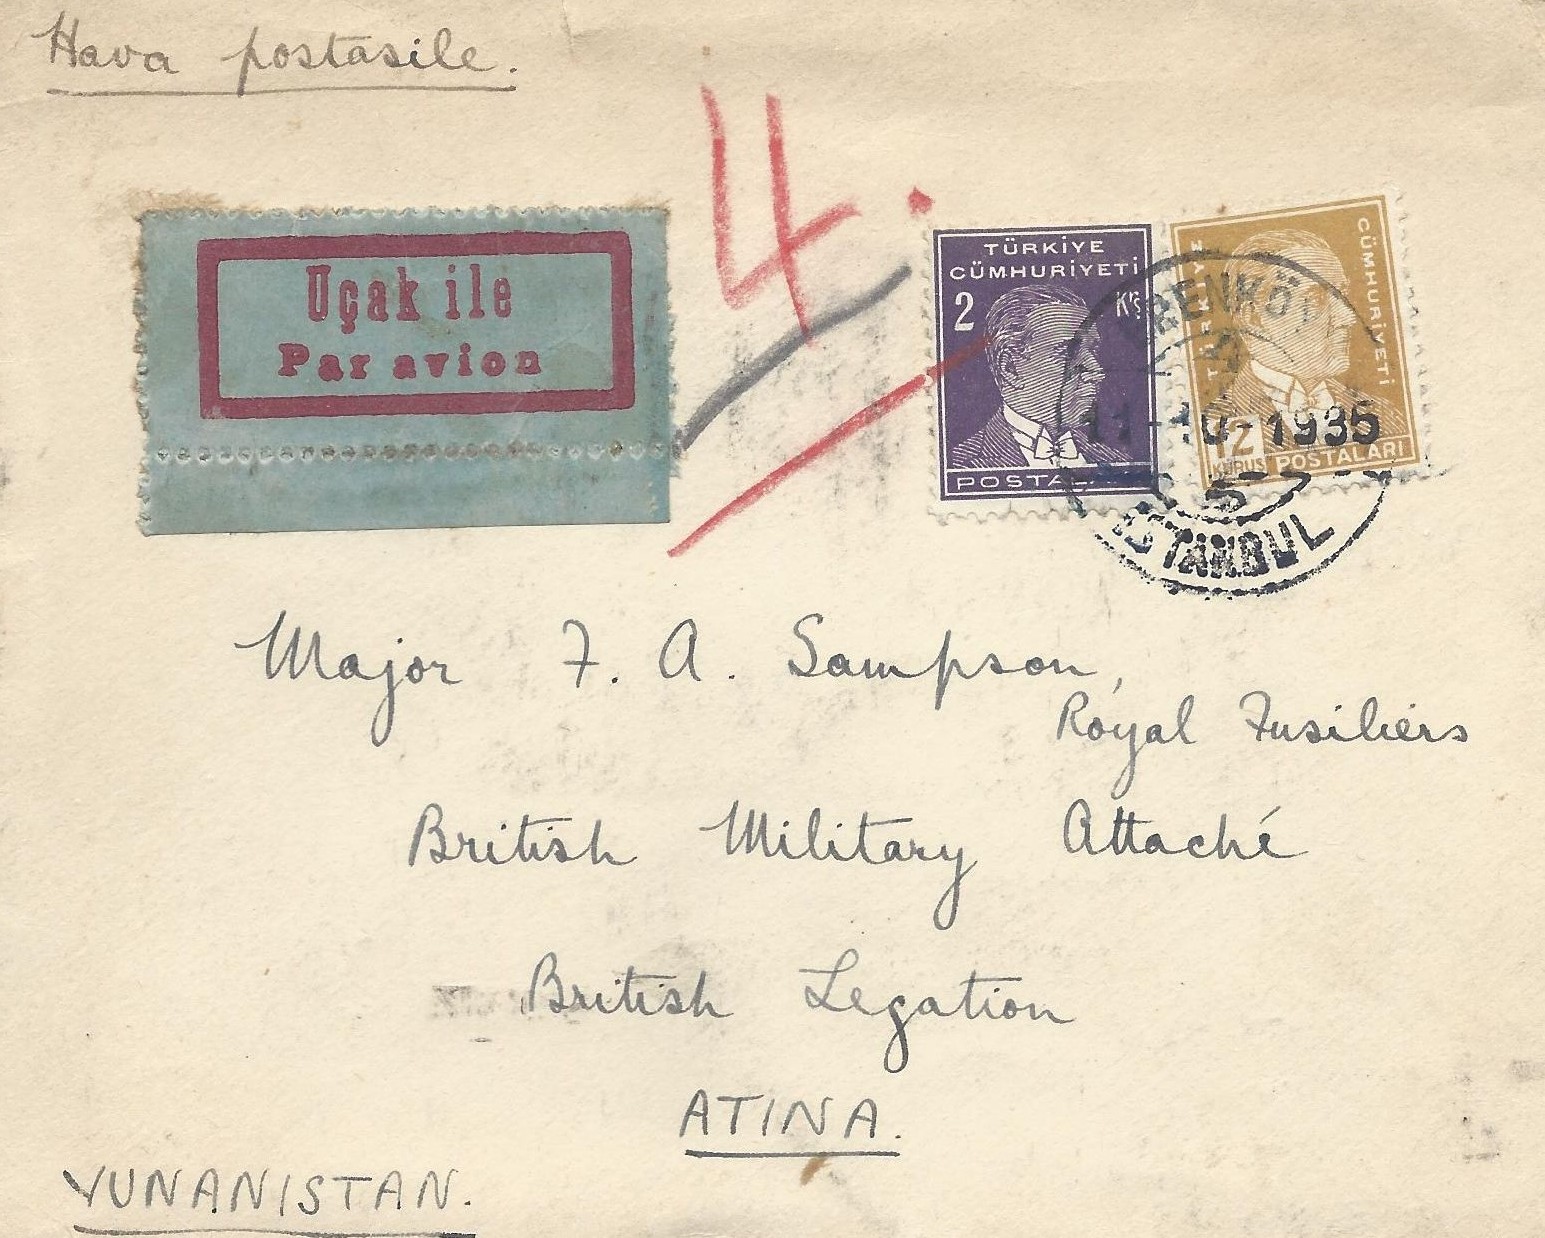 Hava postasile.
4.
Uçak ile
Par avion
TÜRKİYE
CÜMHURİYETİ
2 Krş
POSTALARI
TÜRKİYE
CÜMHURİYETİ
12
KURUŞ POSTALARI
ERENKÖY
11-10-1935
İSTANBUL
Major F. A. Sampson,
Royal Fusiliers
British Military Attaché
British Legation
ATINA.
YUNANISTAN.